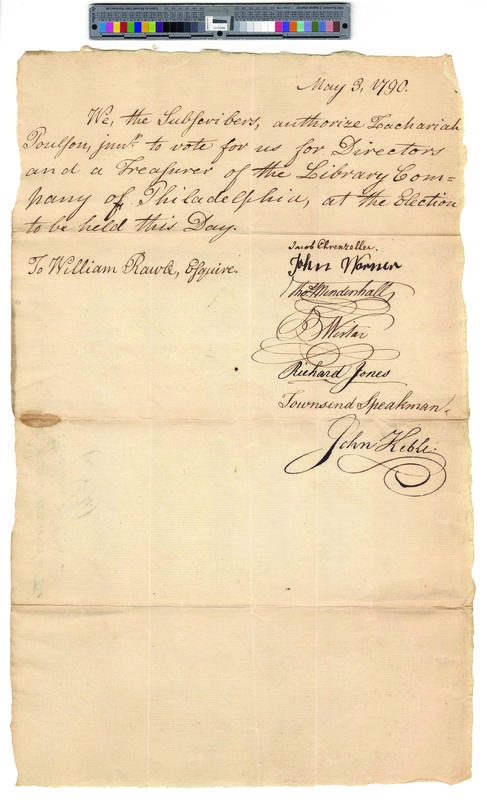 May 3, 1790.
We, the Subscribers, authorize Zachariah
Poulson, junr. to vote for us for Directors
and a Treasurer of the Library Com=
pany of Philadelphia, at the Election
to be held this Day.
To William Rawle, Esquire.
Jacob Ehrenzeller.
John Warner
Thos. Mendenhall
Wistar
Richard Jones
Townsend Speakman
John Keble.